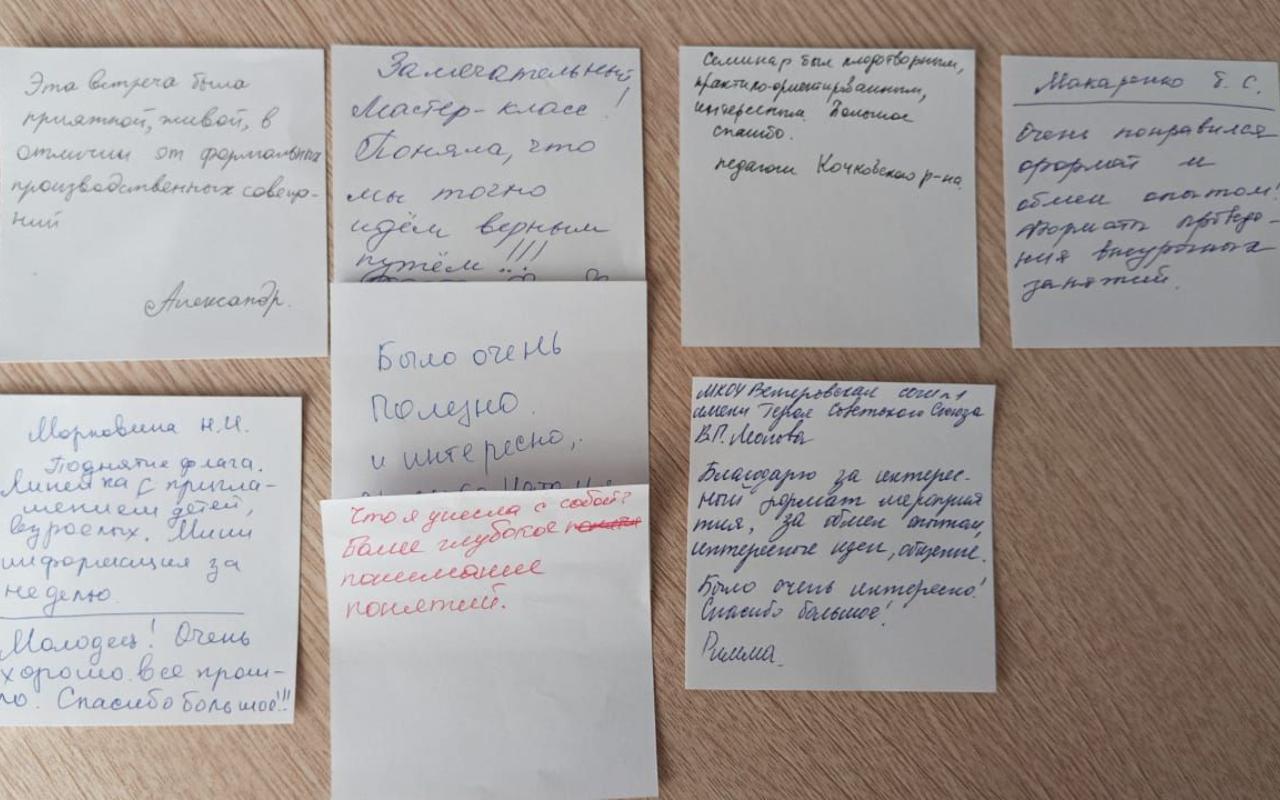 Эта встреча была
приятной, живой, в
отличии от формальных
производственных совеща-
ний
Александр.
Замечательный
Мастер-класс!
Поняла, что
мы точно
идём верным
путём!!!
Было очень
Полезно.
и интересно,
Что я унесла с собой?
Более глубокое
понимание
понятий.
Семинар был плодотворным,
практикоориентированным,
интересным. Большое
спасибо.
педагоги Кочковского р-на.
Макаренко Б. С.
Очень понравился
формат и
обмен опытом!
Форматы проведе-
ния внеурочных
занятий.
Морковина Н.И.
Поднятие флага.
Линейка с пригла-
шением детей,
взрослых. Мини
информация за
неделю.
Молодец! Очень
хорошо все прош-
ло. Спасибо большое!!!
МКОУ
имени Героя Советского Союза
В.П.
Благодарю за интерес-
ный формат мероприя
тия, за обмен опытом,
интересные идеи, общение.
Было очень интересно!
Спасибо большое!
Римма.